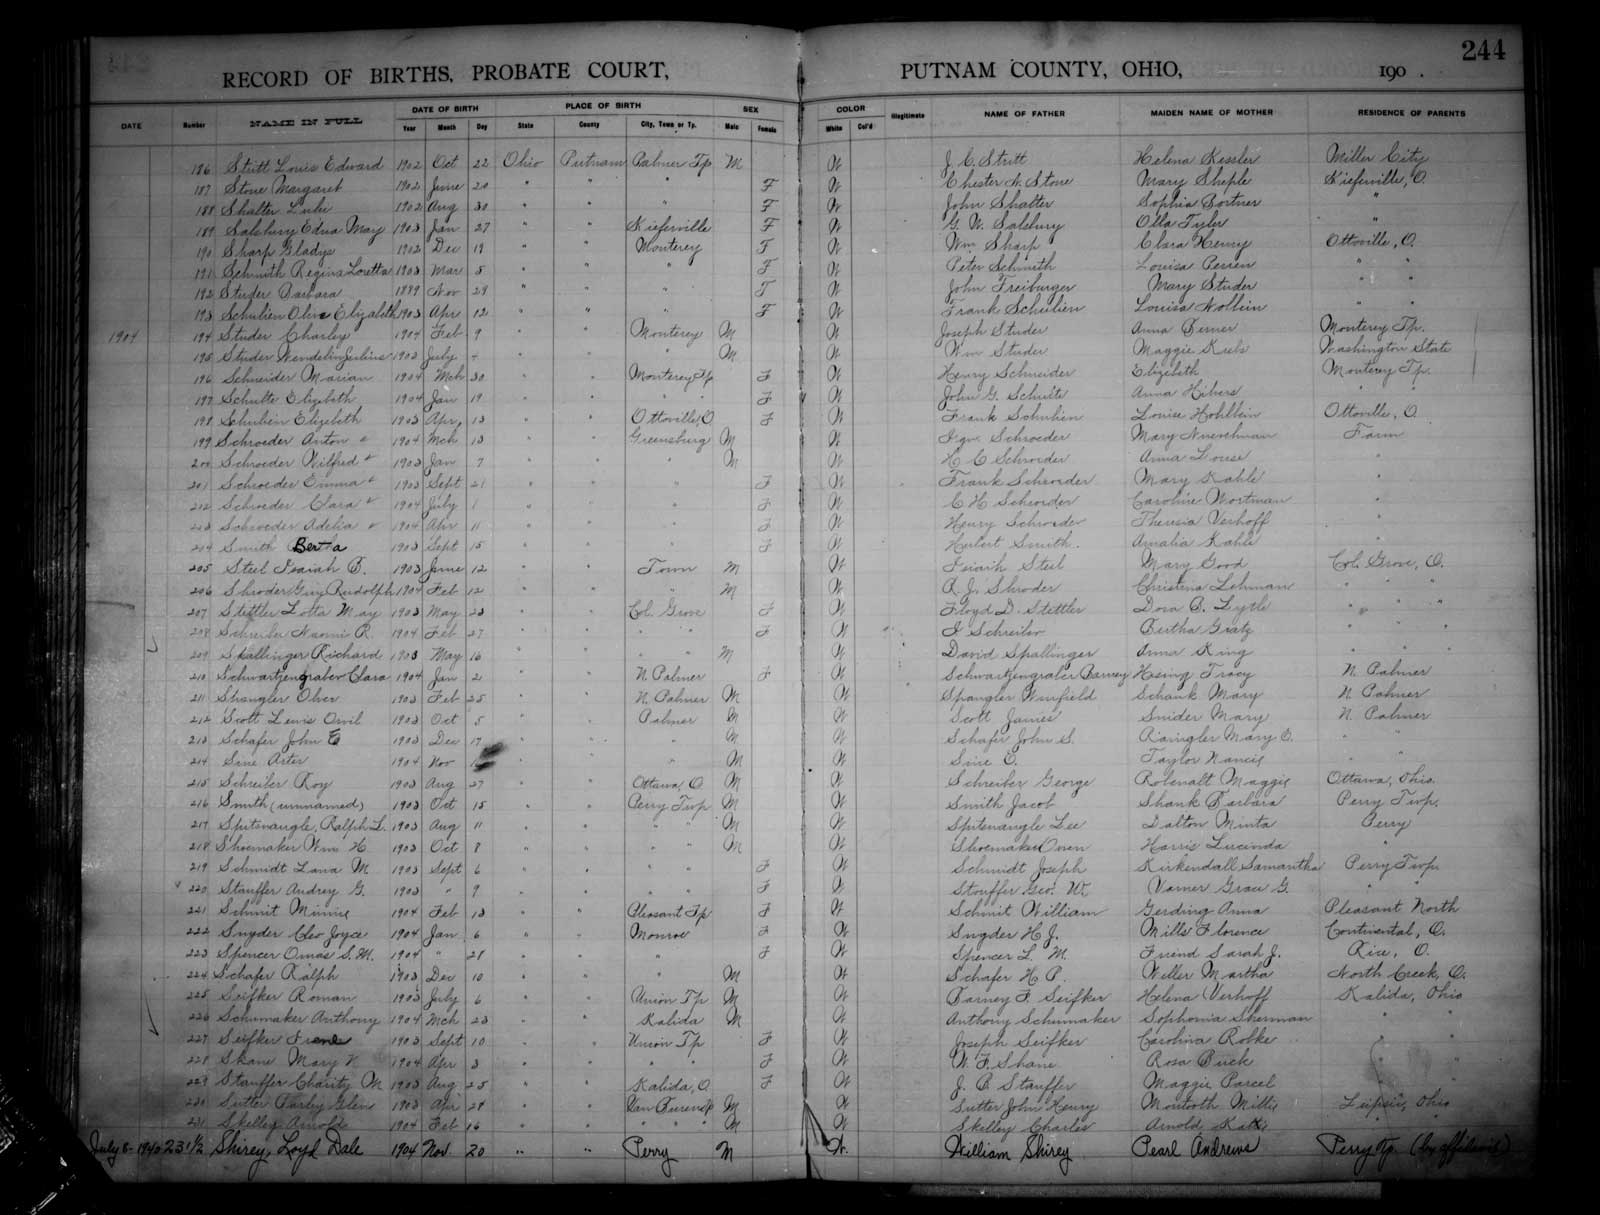 244
RECORD OF BIRTHS, PROBATE COURT, PUTNAM COUNTY, OHIO, 190 .
DATE OF BIRTH PLACE OF BIRTH SEX COLOR
DATE Number NAME IN FULL Year Month Day State County City, Town or Tp. Male Female White Col'd Illegitimate NAME OF FATHER MAIDEN NAME OF MOTHER RESIDENCE OF PARENTS
186 Stritt Louis Edward 1902 Oct 22 Ohio Putnam Palmer Tp M W J. C. Stritt Helena Kessler Miller City
187 Stone Margaret 1902 June 20 " " " F W Chester N. Stone Mary Sheple Kieferville, O.
188 Shalter 1902 Aug 30 " " " F W John Shalter Sophia Sortner "
189 Salsbury Edna May 1903 Jan 27 " " Kieferville F W G. W. Salsbury Olla Tyler "
190 Sharp Gladys 1902 Dec 19 " " Monterey F W Wm Sharp Clara Henry Ottoville, O.
191 Schmith Regina Loretta 1903 Mar 5 " " " F W Peter Schmith Louisa " "
192 Studer Barbara 1899 Nov 29 " " " F W John Freiburger Mary Studer " "
193 Schulien Olive Elizabeth 1903 Apr 12 " " " F W Frank Schulien Louisa " "
1904 194 Studer Charley 1904 Feb 9 " " Monterey M W Joseph Studer Anna Monterey Tp.
195 Studer Wendelin Julius 1903 July 4 " " " M W Wm Studer Maggie Washington State
196 Schneider Marian 1904 Mch 30 " " Monterey Tp F W Henry Schneider Elizabeth Monterey Tp.
197 Schulte Elizabeth 1904 Jan 19 " " " " F W John G. Schulte Anna Hilvers " "
198 Schulien Elizabeth 1903 Apr, 13 " " Ottoville, O. F W Frank Schulien Louise Hohlbein Ottoville, O.
199 Schroeder Anton 1904 Mch 13 " " Greensburg M W Schroeder Mary Farm
200 Schroeder Wilfred 1903 Jan 7 " " " M W H C Schroeder Anna "
201 Schroeder Emma 1903 Sept 21 " " " F W Frank Schroeder Mary Kahle "
202 Schroeder Clara 1904 July 1 " " " F W C H Schroeder Caroline Wortman "
203 Schroeder Adelia 1904 Apr 11 " " " F W Henry Schroeder Theresia Verhoff "
204 Smith Berta 1903 Sept 15 " " " F W Hubert Smith. Amalia Kahle "
205 Steel Isaiah B. 1903 June 12 " " Town M W Isiaih Steel Mary Good Col. Grove, O.
206 Shroder Guy Rudolph 1904 Feb 12 " " " M W A. J. Shroder Christina Lehman " "
207 Stettler Lotta May 1903 May 23 " " Col. Grove F W Floyd D. Stettler Dora B. Lytle " "
208 Schreiber Naomi R. 1904 Feb 27 " " " " F W I Schreiber Bertha Gratz " "
209 Skallinger Richard 1903 May 16 " " " " M W David Spallinger Anna King " "
210 Schwartzengraber Clara 1904 Jan 2 " " N Palmer F W Schwartzengraber Barney Hsing Tracy N. Palmer
211 Spangler Olver 1903 Feb 25 " " N. Palmer M W Spangler Winfield Schank Mary N. Palmer
212 Scott Lewis Orvil 1903 Oct 5 " " Palmer M W Scott James Snider Mary N. Palmer
213 Schafer John E 1903 Dec 17 " " " M W Schafer John S. Mary E. " "
214 Sine Arter 1904 Nov " " " M W Sine E. Taylor Nancie "
215 Schreiber Roy 1903 Aug 27 " " Ottawa, O M W Schreiber George Robenalt Maggie Ottawa, Ohio.
216 Smith (unnamed) 1903 Oct 15 " " Perry Twp M W Smith Jacob Shank Barbara Perry Twp.
217 Spitsnaugle, Ralph L. 1903 Aug 11 " " " " M W Spitsnaugle Lee Dalton Minta Perry
218 Shoemaker Wm H. 1903 Oct 8 " " " " M W Shoemaker Owen Harris Lucinda "
219 Schmidt Lana M 1903 Sept 6 " " " " F W Schmidt Joseph Kirkendall Samantha Perry Twp.
220 Stauffer Audrey G. 1903 " 9 " " " " F W Stouffer Geo. W. Varner Grace G. " "
221 Schmit Minnie 1904 Feb 13 " " Pleasant Tp F W Schmit William Gerding Anna Pleasant North
222 Snyder Cleo Joyce 1904 Jan 6 " " Monroe F W Snyder H J. Mills Florence Continental, O.
223 Spencer Omas S. M. 1904 " 28 " " " F W Spencer L. M. Friend Sarah J. Rice, O.
224 Schafer Ralph 1903 Dec 10 " " " M W Schafer H P. Weller Martha North Creek, O.
225 Seifker Roman 1903 July 6 " " Union Tp M W Barney F. Seifker Helena Verhoff Kalida, Ohio
226 Schumaker Anthony 1904 Mch 23 " " Kalida M W Anthony Schumaker Sophonia Sherman " "
227 Seifker Irene 1903 Sept 10 " " Union Tp F W Joseph Seifker Carolina Robke " "
228 Skane Mary 1904 Apr 3 " " " " F W W. F. Shane Rosa Buck " "
229 Stauffer Charity M 1903 Aug 25 " " Kalida, O. F W J. B Stauffer Maggie Parcel " "
230 Sutter Harley Glen 1903 Apr 24 " " Van Buren Tp M W Sutter John Henry Montooth Millie Leipsic, Ohio
231 Skelley Arnold 1904 Feb 16 " " " " M W Skelley Charles Arnold Katie "
July 8-1940 231 1/2 Shirey, Loyd Dale 1904 Nov. 20 " " Perry M W. William Shirey Pearl Andrews Perry Tp. (by affidavit)